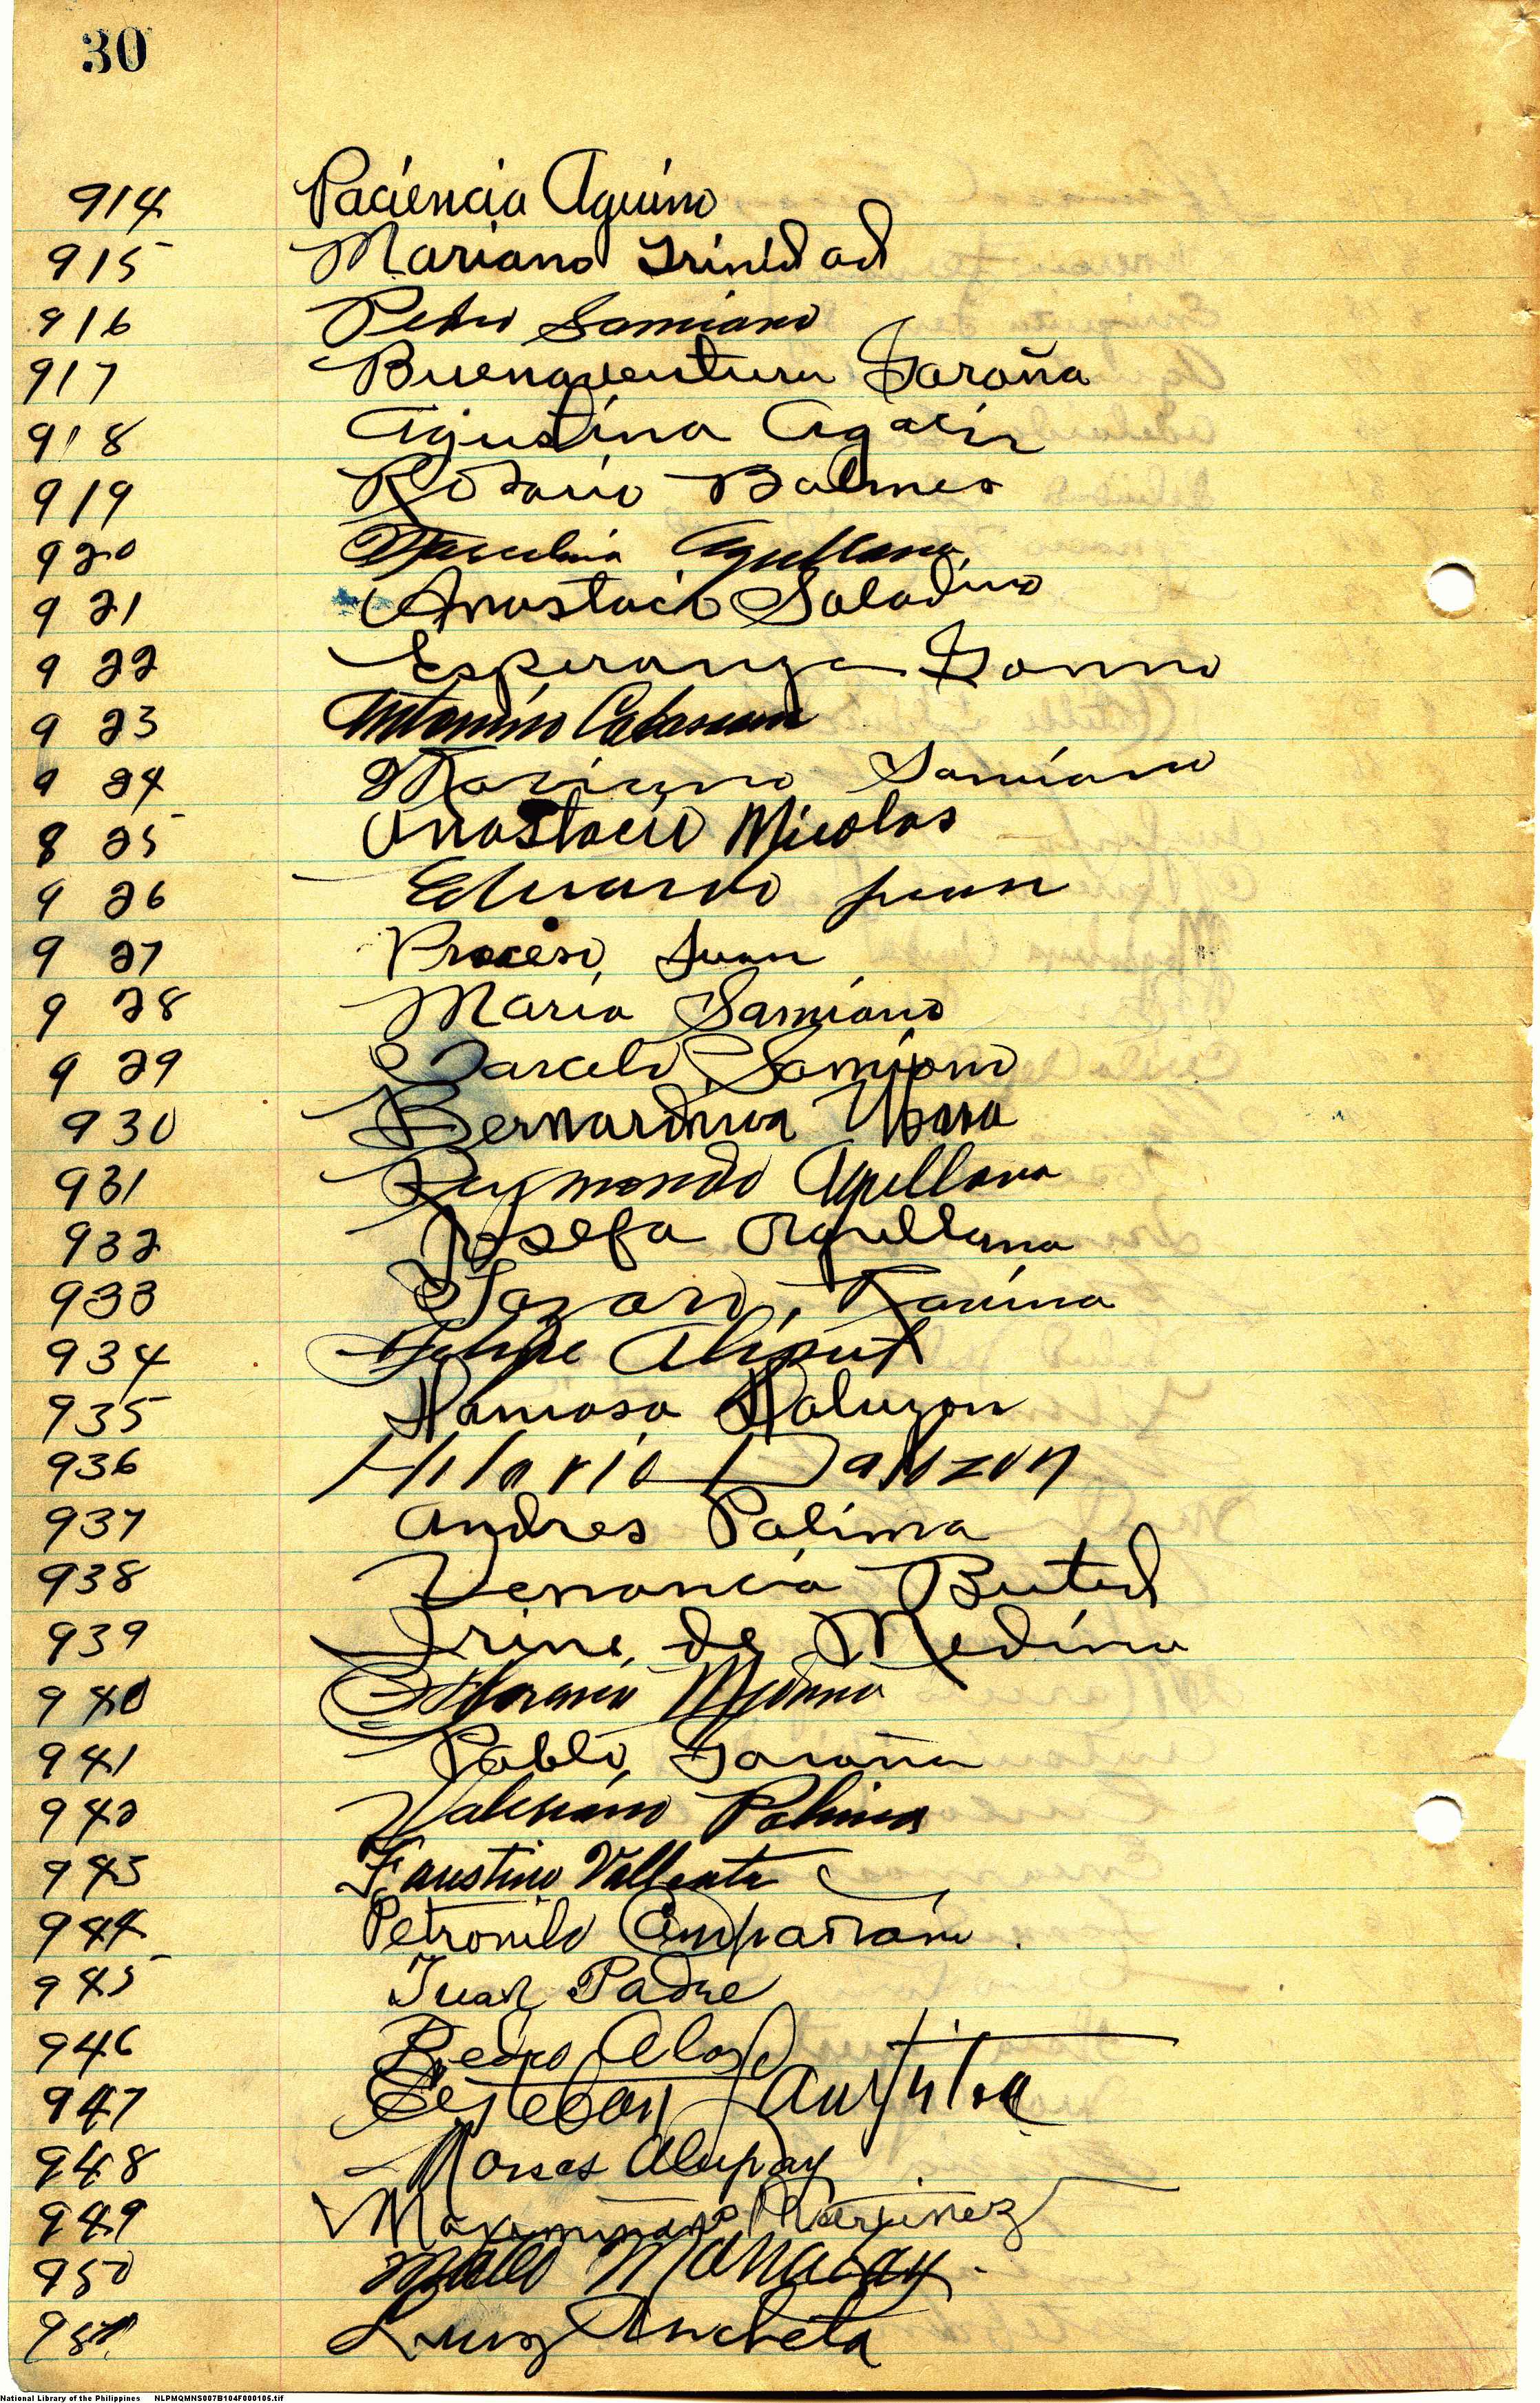 30
914 Paciencia Aquino
915 Mariano Trinidad
916 Pedro Samiano
917 Buenaventura Garaña
918 Agustina Agarin
919 Rosario Balmes
920 Agullana
921 Anastacio Saladino
922 Esperanza
923 Antonino
924 Mariano Samiano
825 Anastacio Nicolas
926 Eduardo Juan
927 Proceso Juan
928 Maria Samiano
929 Marcelo Samiano
930 Bernardina
931 Raymundo Agullana
932 Josefa Agullana
933 Lazaro
934 Felipe Aliput
935 Damasa Daluzon
936 Hilario Daluzon
937 Andres Palima
938 Venancia Buted
939 Irine de Medina
940 Medina
941 Pablo Garaña
942 Valeriano Palima
943 Faustino Valiente
944 Petronilo Campañano
945 Juan Padre
946 Pedro
947 Esteban
948 Moises Alupay
949 Maximiniano Martinez
950 Mateo Manalay
951 Luiz Ancheta
National Library of the Philippines NLPMQMNS007B104F000105.tif